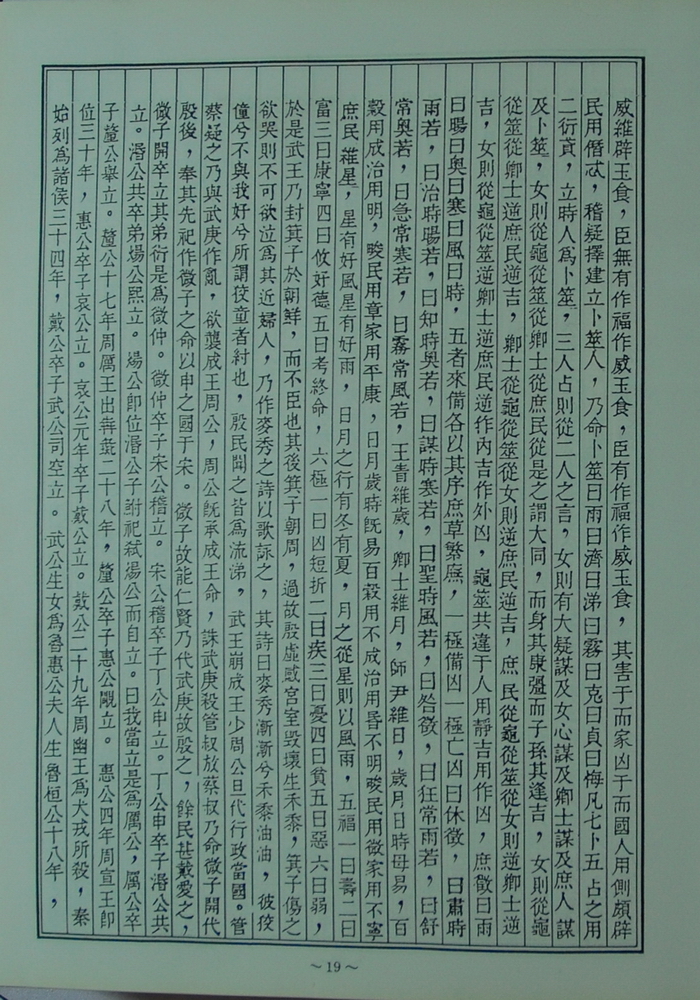 威維辟玉食，臣無有作福作威玉食，臣有作福作威玉食，其害于而家凶于而國人用側頗辟
民用僭忒，稽疑擇建立卜筮人，乃命卜筮曰雨曰濟曰涕曰霧曰克曰貞曰悔凡七卜五占之用
二衍貣，立時人爲卜筮，三人占則從二人之言，女則有大疑謀及女心謀及卿士謀及庶人謀
及卜筮，女則從龜從筮從卿士從庶民從是之謂大同，而身其康彊而子孫其逢吉，女則從龜
從筮從卿士逆庶民逆吉，卿士從龜從筮從女則逆庶民逆吉，庶民從龜從筮從女則逆卿士逆
吉，女則從龜從筮逆卿士逆庶民逆作內吉作外凶，龜筮共違于人用靜吉用作凶，庶徵曰雨
曰暘曰奧曰寒曰風曰時，五者來備各以其序庶草繁廡，一極備凶一極亡凶曰休徵，曰肅時
雨若，曰治時暘若，曰知時奧若，曰謀時寒若，曰聖時風若，曰咎徵，曰狂常雨若，曰舒
常奧若，曰急常寒若，曰霧常風若，王眚維歲，卿士維月，師尹維日，歲月日時毋易，百
穀用成治用明，畯民用章家用平康，日月歲時旣易百穀用不成治用昏不明畯民用微家用不寧
庶民維星，星有好風星有好雨，日月之行有冬有夏，月之從星則以風雨，五福一曰壽二曰
富三曰康寧四曰攸好德五曰考終命，六極一曰凶短折二曰疾三曰憂四曰貧五曰惡六曰弱，
於是武王乃封箕子於朝鮮，而不臣也其後箕子朝周，過故殷虛感宮室毀壞生禾黍，箕子傷之
欲哭則不可欲泣爲其近婦人，乃作麥秀之詩以歌詠之，其詩曰麥秀漸漸兮禾黍油油，彼狡
僮兮不與我好兮所謂狡童者紂也，殷民聞之皆爲流涕，武王崩成王少周公旦代行政當國。管
蔡疑之乃與武庚作亂，欲襲成王周公，周公旣承成王命，誅武庚殺管叔放蔡叔乃命微子開代
殷後，奉其先祀作微子之命以申之國于宋。微子故能仁賢乃代武庚故殷之，餘民甚戴愛之，
微子開卒立其弟衍是爲微仲。微仲卒子宋公稽立。宋公稽卒子丁公申立。丁公申卒子湣公共
立。湣公共卒弟煬公熙立。煬公卽位湣公子鮒祀弒煬公而自立。曰我當立是爲厲公，厲公卒
子釐公舉立。釐公十七年周厲王出犇彘二十八年，釐公卒子惠公覵立。惠公四年周宣王卽
位三十年，惠公卒子哀公立。哀公元年卒子戴公立。戴公二十九年周幽王爲犬戎所殺，秦
始列爲諸侯三十四年，戴公卒子武公司空立。武公生女爲魯惠公夫人生魯桓公十八年，
～19～